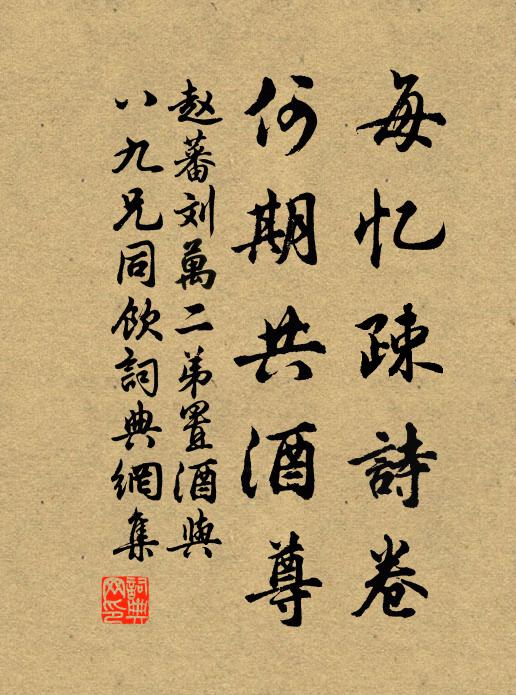 每忆疎詩卷
何期共酒尊
赵蕃刘萬二弟置酒與
八九兄同飲詞典網集
詞典網印